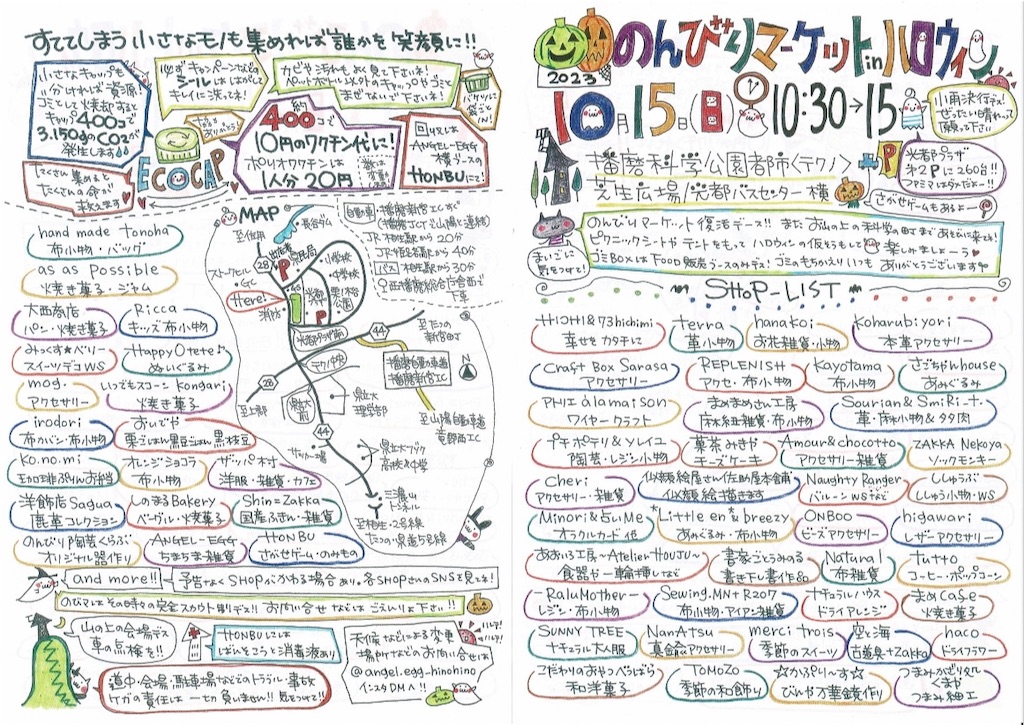 すててしまう小さなモノも集めれば誰かを笑顔に!!
小さなキャップも
分ければ資源!
ゴミとして焼却すると
キャップ400コで
3.150gのCO2が
発生します
必ずキャンペーンなどの
シールははがして
キレイに洗ってネ!
カビや汚れもよく見て下さいネ!
ペットボトル以外のキャップやゴミを
まぜないで下さいネ!
ECOCAP
たくさん集めると
たくさんの命が
救えます
約
400コで
10円のワクチン代に!
ポリオワクチンは
1人分20円
回収は
ANGEL-EGG
横ブースの
HONBUにて!
hand made tonoha
布小物・バッグ
as as possible
焼き菓子・ジャム
大西商店
パン・焼き菓子
Ricca
キッズ布小物
みっくす★ベリー
スイーツデコWS
Happy Otete♪
ぬいぐるみ
mog.
アクセサリー
いつもスコーン Kongari
焼き菓子
irodori
布かバン・布小物
おいでや
栗ごはん黒豆ごはん黒枝豆
ko.no.mi
オレンジショコラ
布小物
ザッパ村
洋服・雑貨・カフェ
洋飾店Sagua
しのまるBakery
ベーグル・焼き菓子
Shin=Zakka
国産ふきん・雑貨
のんびり陶芸くらぶ
オリジナル器作り
ANGEL-EGG
ちまちま雑貨
HONBU
さがせゲーム・のみもの
MAP
至佐用
長谷ダム
出張所
県民局
小学校
中学校
ストークヒル
Here!
消防
芝生
広場
光都プラザ前
テクノ中央
県立大前
県立大
理学部
至上郡
サッカー場
28
28
44
44
N
自動車:播磨新宮ICすぐ
JR・相生駅から20分
バス・相生駅から30分
播磨自動車道
播磨新宮IC
至山陽自動車道
竜野西IC
県立大フゾク
高校・中学
三濃山
トンネル
至相生・2号線
たつの・県道5号線
and more!!
予告なくSHOPがかわる場合あり。各SHOPさんのSNSを見てネ!
山の上の会場デス
車の点検を!!
HONBUには
ばんそうこうと消毒液あり
道中・会場・駐車場などでのトラブル・事故
ケガの責任は一切負いません!! 気をつけて!!
天候などによる変更
場所などのお問い合せは
@angel.egg_hinohino
インスタDMへ!!
のんびりマーケットinハロウィン
2023
10月15日(日)10:30→15
小雨決行デス!
ぜったい晴れって
願って下さい
播磨科学公園都市<テクノ>
芝生広場/光都バスセンター横
P
光都プラザ
第2Pに260台!!
さがせゲームもあるよー
まいごに
気をつけて!
のんびりマーケット復活デース!! また お山の上の科学の町まであそびに来てネ!
ピクニックシートやテントをもってハロウィンの仮そうもして楽しみましょーう
ゴミBOXはFOOD販売ブースのみデス! ゴミのもちかえりいつも ありがとうございます
SHOP-LIST
HICHI&73hichimi
幸せをカタチに
terra
革小物
hanakoi
お花雑貨・小物
koharubiyori
本革アクセサリー
Craft Box Sarasa
アクセサリー
REPLENISH
アクセ・布小物
Kayotama
布小物
さごちゃんhouse
あみぐるみ
アトリエ àlamaison
ワイヤークラフト
まめまめさん工房
麻紐雑貨・布小物
Sourian&SmiRi-ナ.
革・麻小物&タタ肉
プチポテリ&ソレイユ
陶芸・レジン小物
菓茶みきや
チーズケーキ
Amour&chocotto
アクセサリー雑貨
ZAKKA Nekoya
ソックモンキー
Cheri
アクセサリー・雑貨
似顔絵屋さん佐助屋本舗
似顔絵描きます
Naughty Ranger
バルーンWSなど
ししゅうぶ
ししゅう小物・WS
Minori&占いMe
オラクルカード他
Little en*&breezy
あみぐるみ・布小物
ONBOO
ビーズアクセサリー
higawari
レザーアクセサリー
あおいろ工房~Atelier HOUJU~
食器や一輪挿しなど
書家ごとうみのる
書き下し書作品
Natural
布雑貨
tutto
コーヒー・ポップコーン
-RaluMother-
レジン・布小物
Sewing.MN+R207
布小物・アイアン雑貨
ナチュラルハウス
ドライアレンジ
まめcafe
焼き菓子
SUNNY TREE
ナチュラル大人服
NanAtsu
真鍮アクセサリー
merci trois
季節のスイーツ
空と海
古道具+Zakka
haco
ドライフラワー
こだわりのおやつべらぼら
和洋菓子
ToMoZo
季節の和飾り
☆かるびぃーず☆
びんや万華鏡作り
つまみかざりタルト
くまや
つまみ細工